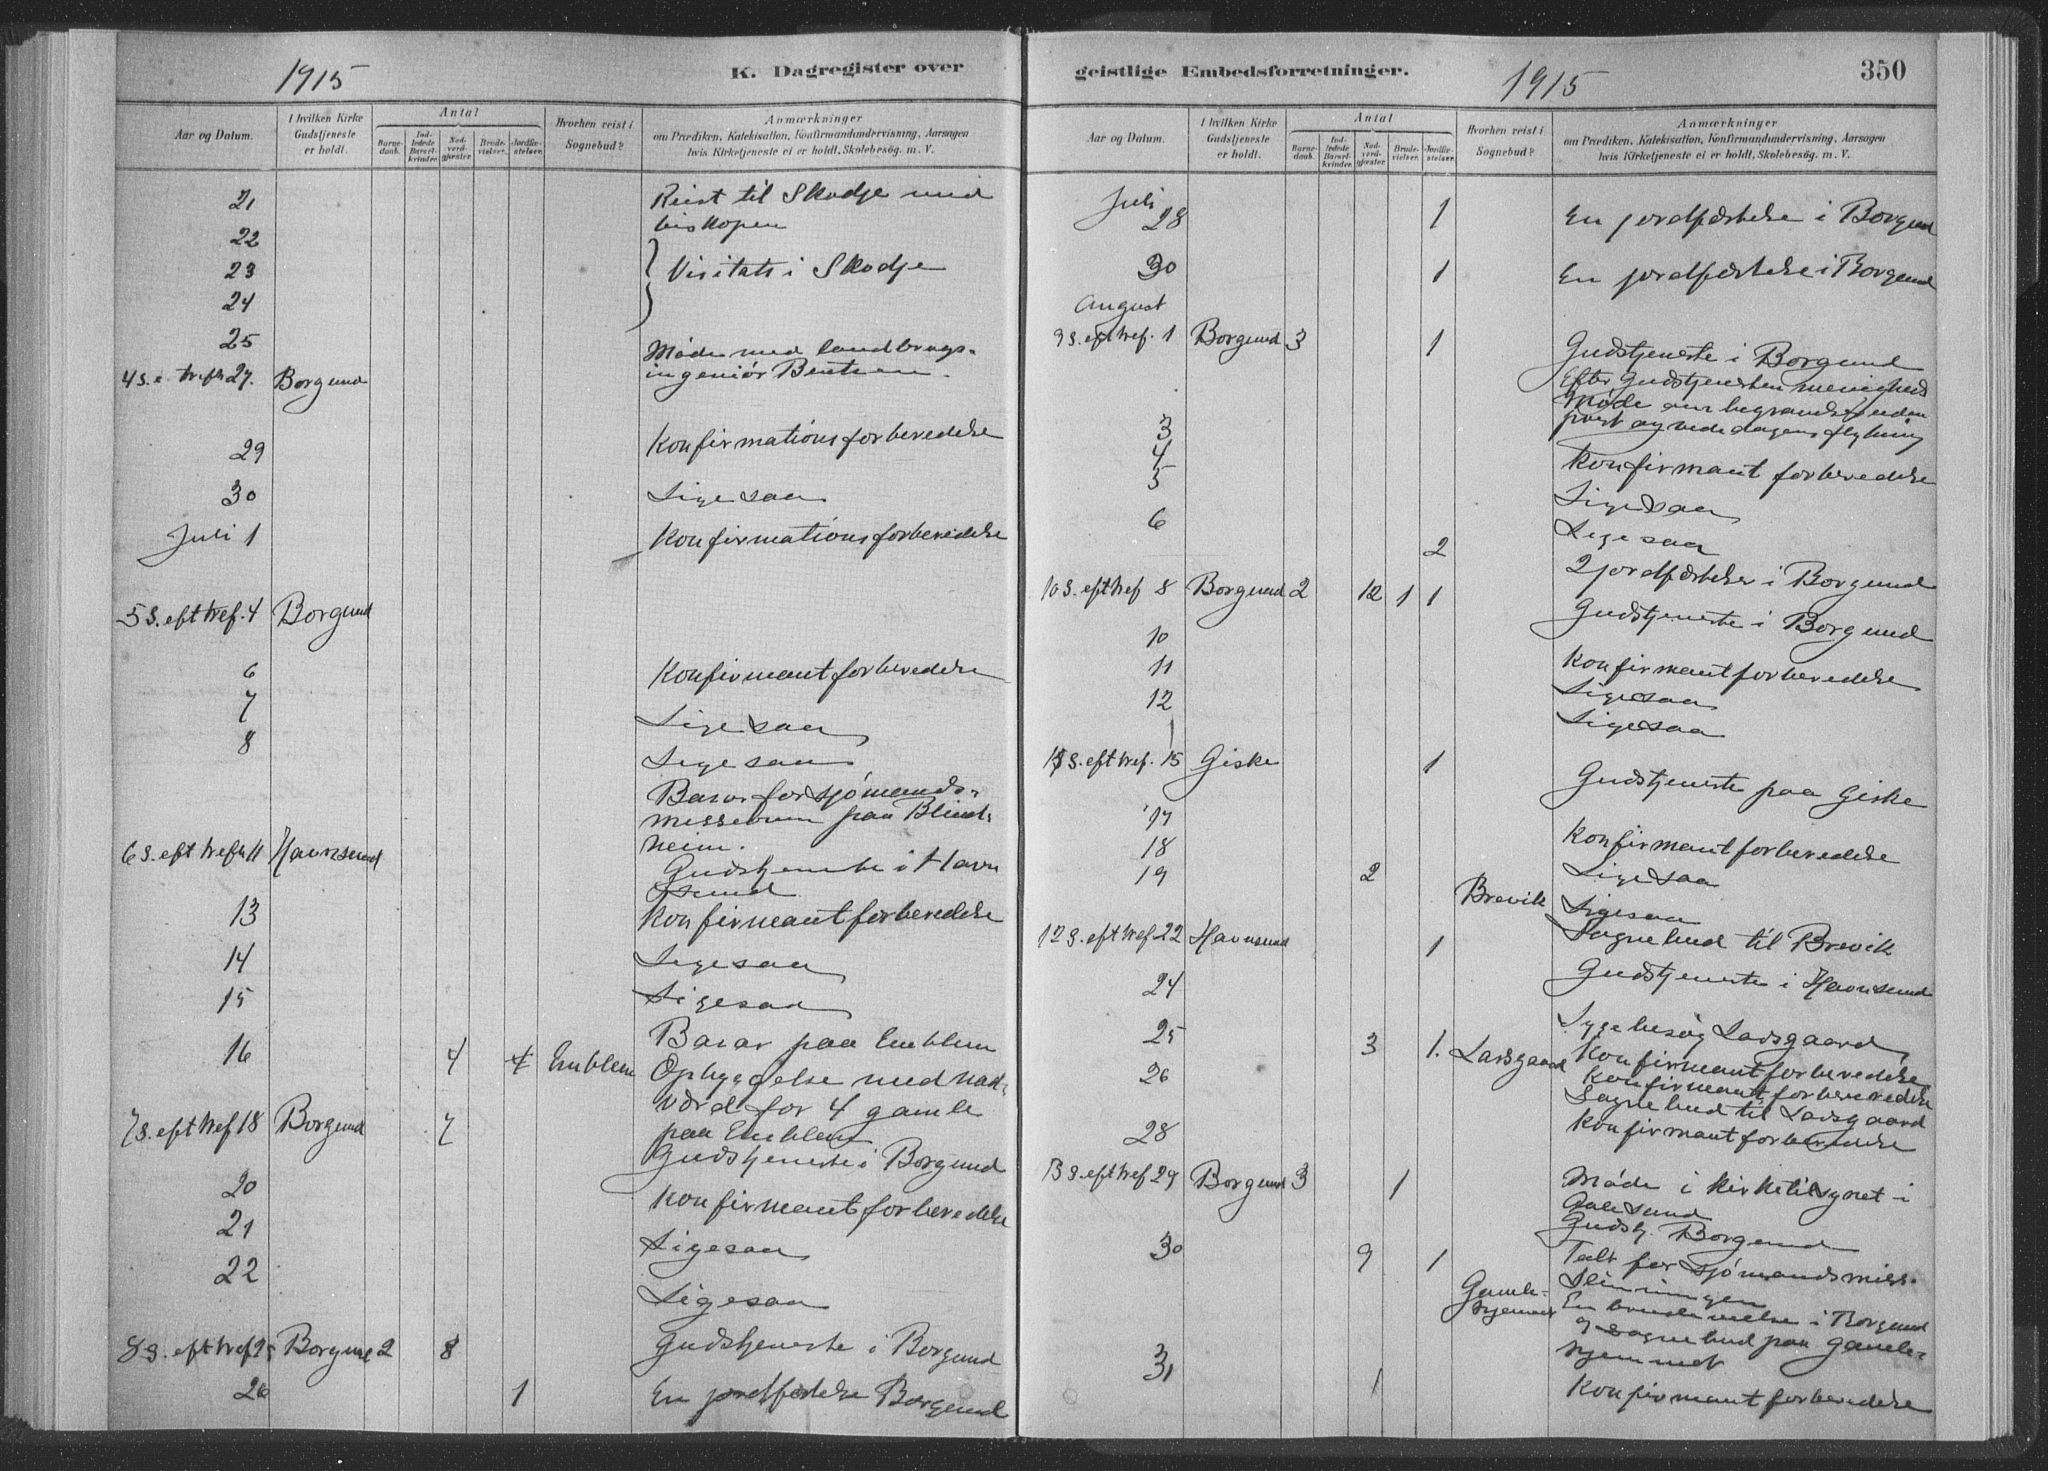 1915
K. Dagregister over
Aar og Datum.
I hvilken Kirke Gudstjeneste er holdt.
Antal
Barnedaab.
Indledede Barselkvinder.
Nadverdgjæster.
Brudevielser.
Jordfæstelser.
Hvorhen reist i Sognebud?
Anmærkninger
om Prædiken, Katekisation, Konfirmandundervisning, Aarsagen
hvis Kirketjeneste ei er holdt, Skolebesøg m. V.
21 Reist til Skodje med
biskopen
22
23 Visitats i Skodje
24
25 Møde med landbrugs-
ingeniør Bentsen.
4 S. e. trefh 27. Borgund
29 Konfirmationsforberedelse
30 Ligesaa
Juli 1 Konfirmationsforberedelse
5 S. eft tref. 4 Borgund
6 Konfirmantforberedelse
7 Ligesaa
8 Ligesaa
Basar for sjømands-
missionen paa Blind-
heim.
6 S. eft trefh 11 Havnsund Gudstjeneste i Havn
sund
13 Konfirmantforberedelse
14 Ligesaa
15 Ligesaa
Basar paa Emblem
16 4 4 Emblem Opbyggelse med nad-
værd for 4 gamle
paa Emblem
7 S. eft tref 18 Borgund 7 Gudstjeneste i Borgund
20 Konfirmantforberedelse
21 Ligesaa
22 Ligesaa
8 S. eft tref 25 Borgund 2 8 Gudstjeneste i Borgund
26 1 En jordfæstelse Borgund
geistlige Embedsforretninger.
1915
350
Aar og Datum.
I hvilken Kirke Gudstjeneste er holdt.
Antal
Barnedaab.
Indledede Barselkvinder.
Nadverdgjæster.
Brudevielser.
Jordfæstelser.
Hvorhen reist i Sognebud?
Anmærkninger
om Prædiken, Katekisation, Konfirmandundervisning, Aarsagen
hvis Kirketjeneste ei er holdt, Skolebesøg m. V.
Juli
28 1 En jordfæstelse i Borgund
30 1 En jordfæstelse i Borgund
August
9 S. eft tref. 1 Borgund 3 1 Gudstjeneste i Borgund
Efter Gudstjenesten menigheds
møde om
og bededagens flytning
3 Konfirmantforberedelse
4 Ligesaa
5 Ligesaa
6 2 2 jordfæstelser i Borgund
10 S. eft tref 8 Borgund 2 12 1 1 Gudstjeneste i Borgund
10 Konfirmantforberedelse
11 Ligesaa
12 Ligesaa
11 S. eft tref. 15 Giske 1 Gudstjeneste paa Giske
17 Konfirmantforberedelse
18 Ligesaa
19 2 Brevik Ligesaa
Sognebud til Brevik
12 S. eft tref 22 Havnsund 1 Gudstjeneste i Havnsund
24 Sygebesøg Larsgaard
Konfirmantforberedelse
25 3 1. Larsgaard Konfirmantforberedelse
Sognebud til Larsgaard
26 Konfirmantforberedelse
28 Møde i kirketilsynet i
Aalesund
13 S. eft tref 29 Borgund 3 1 Gudstj. Borgund
Talt for sjømandsmiss.
Slinningen
30 9 1 Gamle-
hjemmet En brudevielse i Borgund
og sognebud paa gamle-
hjemmet
31 1 Konfirmantforberedelse